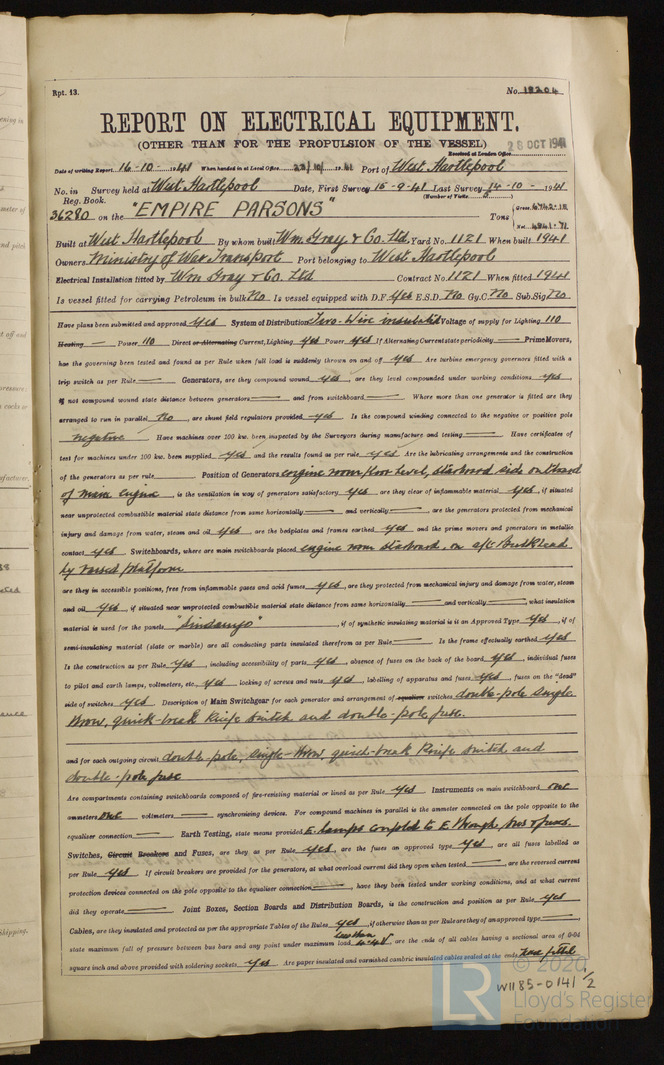 Rpt. 13.
No. 19204
REPORT ON ELECTRICAL EQUIPMENT.
(OTHER THAN FOR THE PROPULSION OF THE VESSEL)
28 OCT 1941
Received at London Office
Date of writing Report 16-10-1941 When handed in at Local Office 23/10/1941 Port of West Hartlepool
No. in Survey held at West Hartlepool Date, First Survey 15-9-41 Last Survey 14-10-1941
Reg. Book. (Number of Visits
36280 on the "EMPIRE PARSONS" Tons Gross Net
Built at West Hartlepool By whom built Wm. Gray & Co. Ltd. Yard No. 1121 When built 1941
Owners Ministry of War Transport Port belonging to West Hartlepool
Electrical Installation fitted by Wm Gray & Co. Ltd Contract No. 1121 When fitted 1941
Is vessel fitted for carrying Petroleum in bulk No Is vessel equipped with D.F. Yes E.S.D. No Gy.C. No Sub.Sig. No
Have plans been submitted and approved Yes System of Distribution Two-Wire insulated Voltage of supply for Lighting 110
Heating — Power 110 Direct or Alternating Current, Lighting Yes Power Yes If Alternating Current state periodicity — Prime Movers,
has the governing been tested and found as per Rule when full load is suddenly thrown on and off Yes Are turbine emergency governors fitted with a
trip switch as per Rule — Generators, are they compound wound Yes, are they level compounded under working conditions Yes,
if not compound wound state distance between generators — and from switchboard — Where more than one generator is fitted are they
arranged to run in parallel No, are shunt field regulators provided Yes Is the compound winding connected to the negative or positive pole
negative Have machines over 100 kw. been inspected by the Surveyors during manufacture and testing — Have certificates of
test for machines under 100 kw. been supplied Yes and the results found as per rule Yes Are the lubricating arrangements and the construction
of the generators as per rule Position of Generators engine room floor level, starboard side outboard
of main engine, is the ventilation in way of generators satisfactory Yes are they clear of inflammable material Yes, if situated
near unprotected combustible material state distance from same horizontally — and vertically —, are the generators protected from mechanical
injury and damage from water, steam and oil Yes, are the bedplates and frames earthed Yes and the prime movers and generators in metallic
contact Yes Switchboards, where are main switchboards placed engine room starboard, on aft Bulkhead
by raised platform
are they in accessible positions, free from inflammable gases and acid fumes Yes, are they protected from mechanical injury and damage from water, steam
and oil Yes, if situated near unprotected combustible material state distance from same horizontally — and vertically —, what insulation
material is used for the panels "Sindanyo", if of synthetic insulating material is it an Approved Type Yes, if of
semi-insulating material (slate or marble) are all conducting parts insulated therefrom as per Rule — Is the frame effectually earthed Yes
Is the construction as per Rule Yes, including accessibility of parts Yes, absence of fuses on the back of the board Yes, individual fuses
to pilot and earth lamps, voltmeters, etc. Yes locking of screws and nuts Yes, labelling of apparatus and fuses Yes, fuses on the "dead"
side of switches Yes Description of Main Switchgear for each generator and arrangement of equaliser switches double-pole single
throw, quick-break knife switch and double-pole fuse.
and for each outgoing circuit double-pole, single-throw, quick-break knife switch and
double-pole fuse
Are compartments containing switchboards composed of fire-resisting material or lined as per Rule Yes Instruments on main switchboard one
ammeters one voltmeters — synchronising devices. For compound machines in parallel is the ammeter connected on the pole opposite to the
equaliser connection — Earth Testing, state means provided E. lamps coupled to E through bus & fuses.
Switches, Circuit Breakers and Fuses, are they as per Rule Yes, are the fuses an approved type Yes, are all fuses labelled as
per Rule Yes If circuit breakers are provided for the generators, at what overload current did they open when tested —, are the reversed current
protection devices connected on the pole opposite to the equaliser connection —, have they been tested under working conditions, and at what current
did they operate — Joint Boxes, Section Boards and Distribution Boards, is the construction and position as per Rule Yes
Cables, are they insulated and protected as per the appropriate Tables of the Rules Yes, if otherwise than as per Rule are they of an approved type —,
less than
state maximum fall of pressure between bus bars and any point under maximum load are the ends of all cables having a sectional area of 0.04
square inch and above provided with soldering sockets Yes Are paper insulated and varnished cambric insulated cables sealed at the ends None fitted
© 2020
W1185-0141 1/2
LR
Lloyd's Register
Foundation